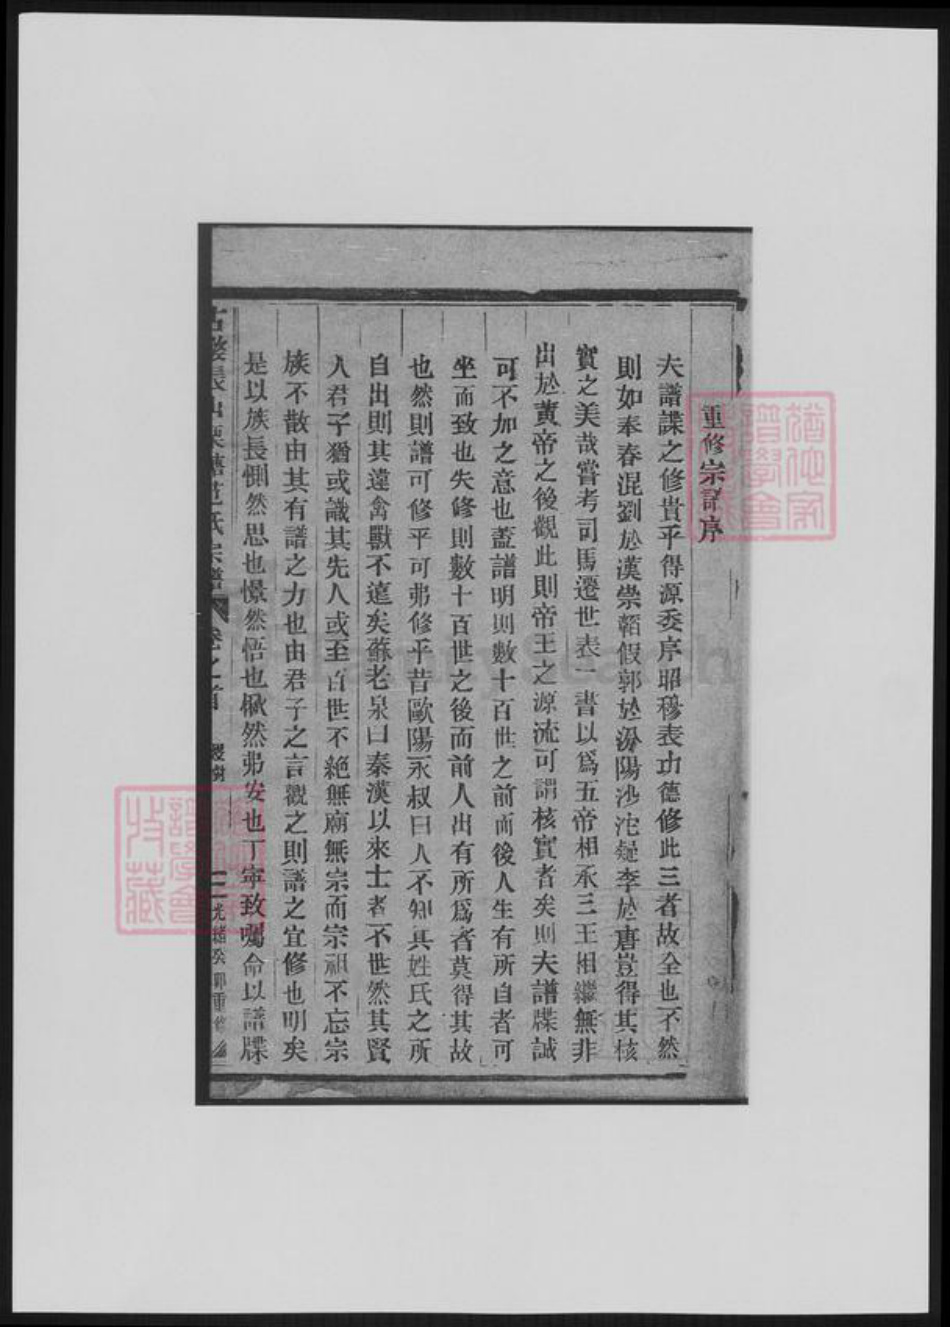 重修宗譜序
夫譜諜之修貴乎得源委序昭穆表功德修此三者故全也不然
則如奉春混劉於漢崇韜假郭於汾陽沙沱疑李於唐豈得其核
實之美哉嘗考司馬遷世表一書以爲五帝相承三王相繼無非
出於黃帝之後觀此則帝王之源流可謂核實者矣則夫譜牒誠
可不加之意也蓋譜明則數十百世之前而後人生有所自者可
坐而致也失修則數十百世之後而前人出有所爲者莫得其故
也然則譜可修乎可弗修乎昔歐陽永叔曰人不知其姓氏之所
自出則其違禽獸不遠矣蘇老泉曰秦漢以來士者不世然其賢
人君子猶或識其先人或至百世不絕無廟無宗而宗祖不忘宗
族不散由其有譜之力也由君子之言觀之則譜之宜修也明矣
是以族長惻然思也憬然悟也愀然弗安也丁寧致囑命以譜牒
范氏宗譜 卷之首 二 光緒癸卯重修
FamilySearch